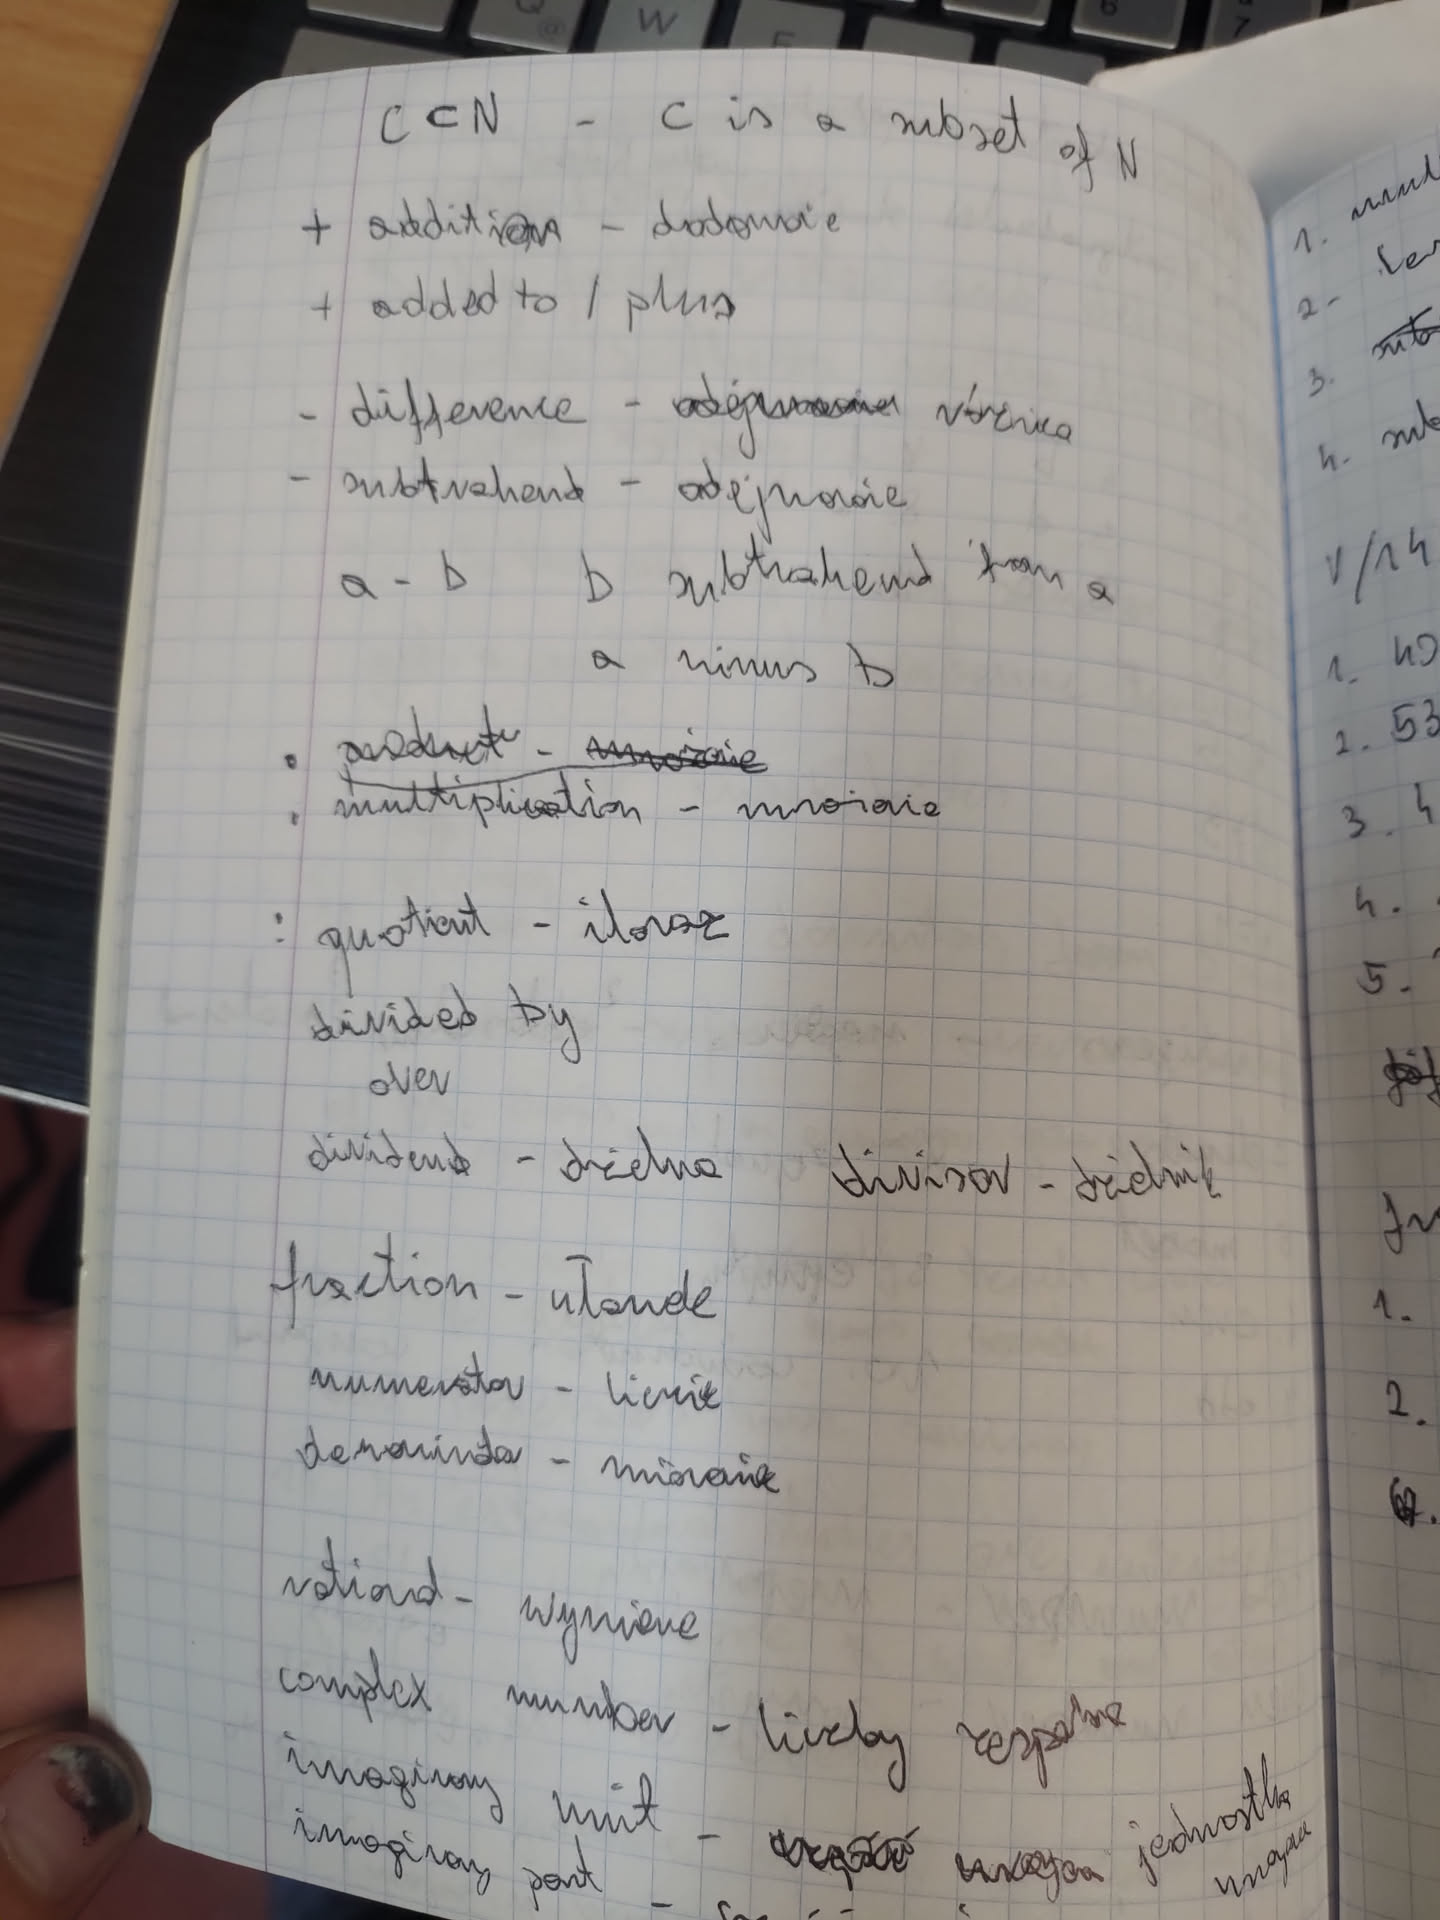 C ⊂ N - C is a subset of N
+ addition - dodawanie
+ added to / plus
- difference - odejmowanie różnica
- subtrahend - odejmowanie
a - b b subtrahend from a
a minus b
· product - mnożenie
· multiplication - mnożenie
: quotient - iloraz
divided by
over
dividend - dzielna divisor - dzielnik
fraction - ułamek
numerator - licznik
denominator - mianownik
rational - wymierne
complex number - liczby zespolone
imaginary unit - jednostka
urojona
imaginary part -
1.
2.
3.
4.
V/14
1.
2. 53
3. 4
4.
5.
1.
2.